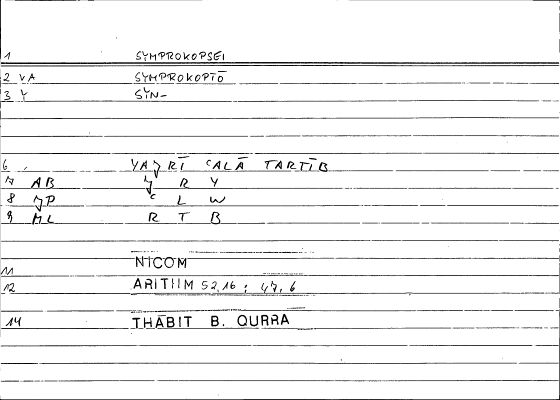 1 SYMPROKOPSEI
2 VA SYMPROKOPTŌ
3 Y SYN-
6 YAJRĪ ʿALĀ TARTĪB
7 AB J R Y
8 JP ʿ L W
9 ML R T B
11 NICOM
12 ARITHM 52,16 ; 47,6
14 THĀBIT B. QURRA